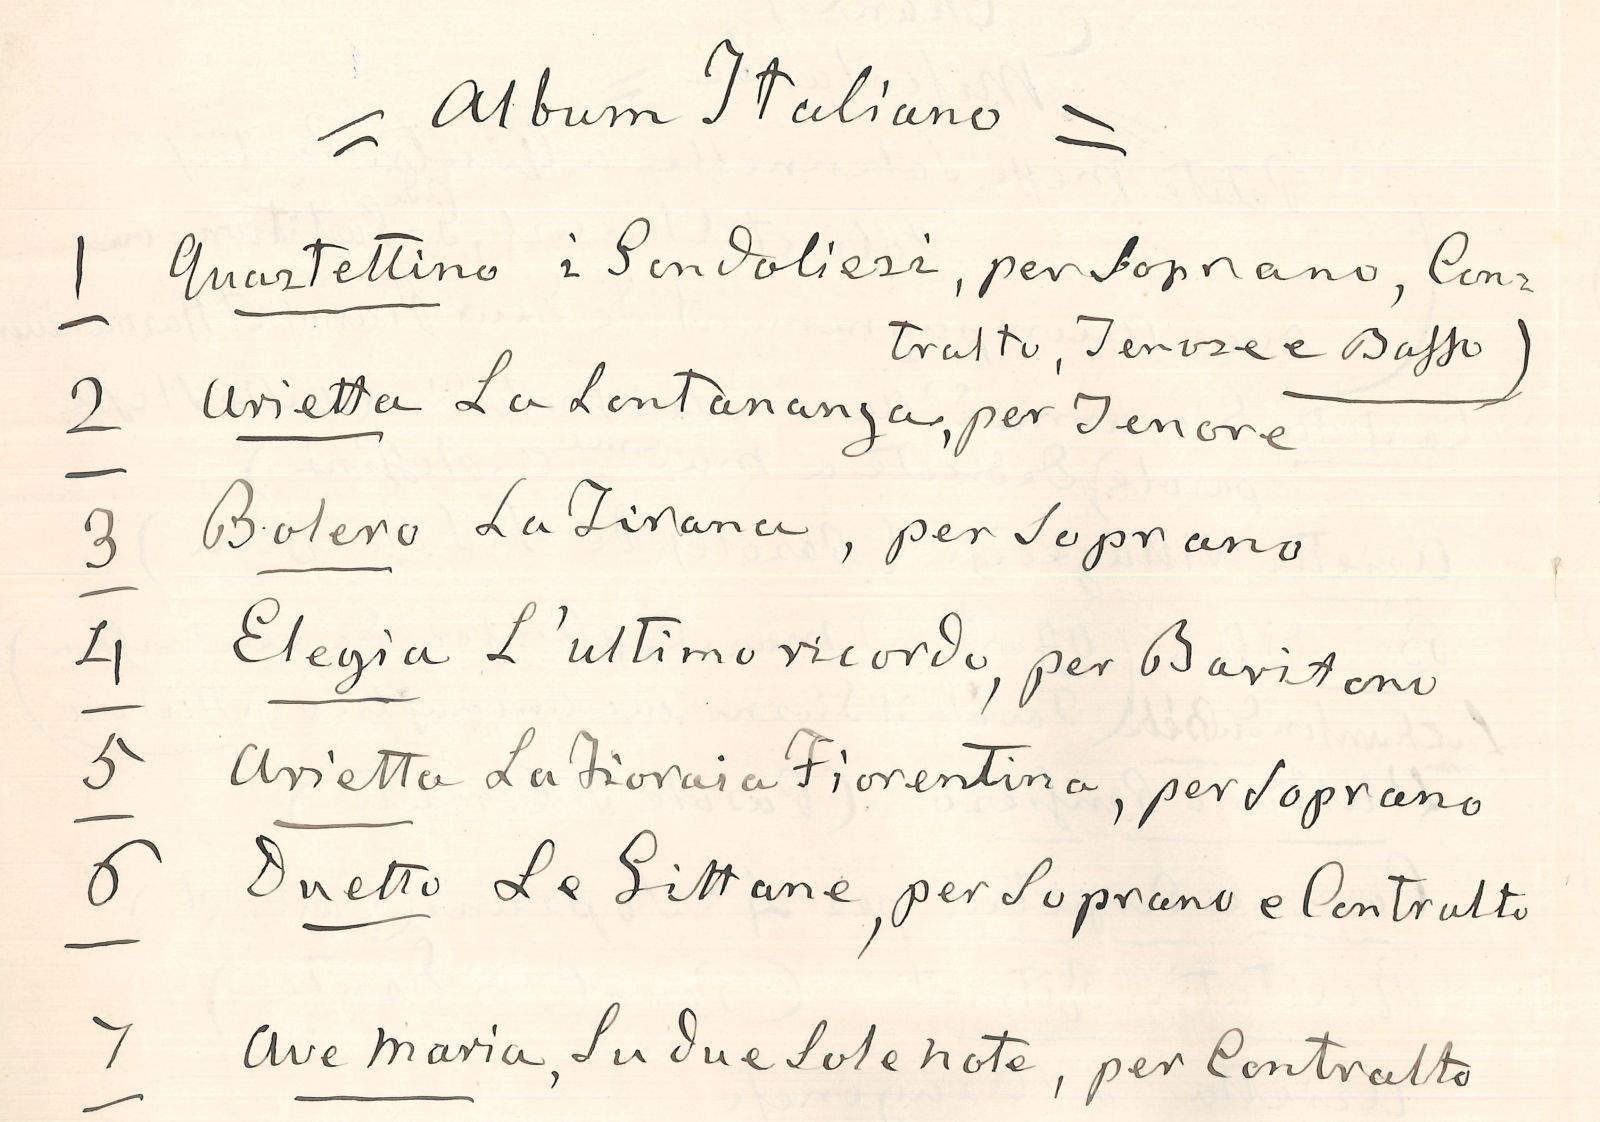 = Album Italiano =
1 Quartettino i Gondolieri, per Soprano, Con=
tralto, Tenore e Basso)
2 Arietta La Lontananza, per Tenore
3 Bolero La Tirana, per Soprano
4 Elegia L'ultimo ricordo, per Baritono
5 Arietta La Fioraia Fiorentina, per Soprano
6 Duetto Le Gittane, per Soprano e Contralto
7 Ave Maria, Su due Sole note, per Contralto